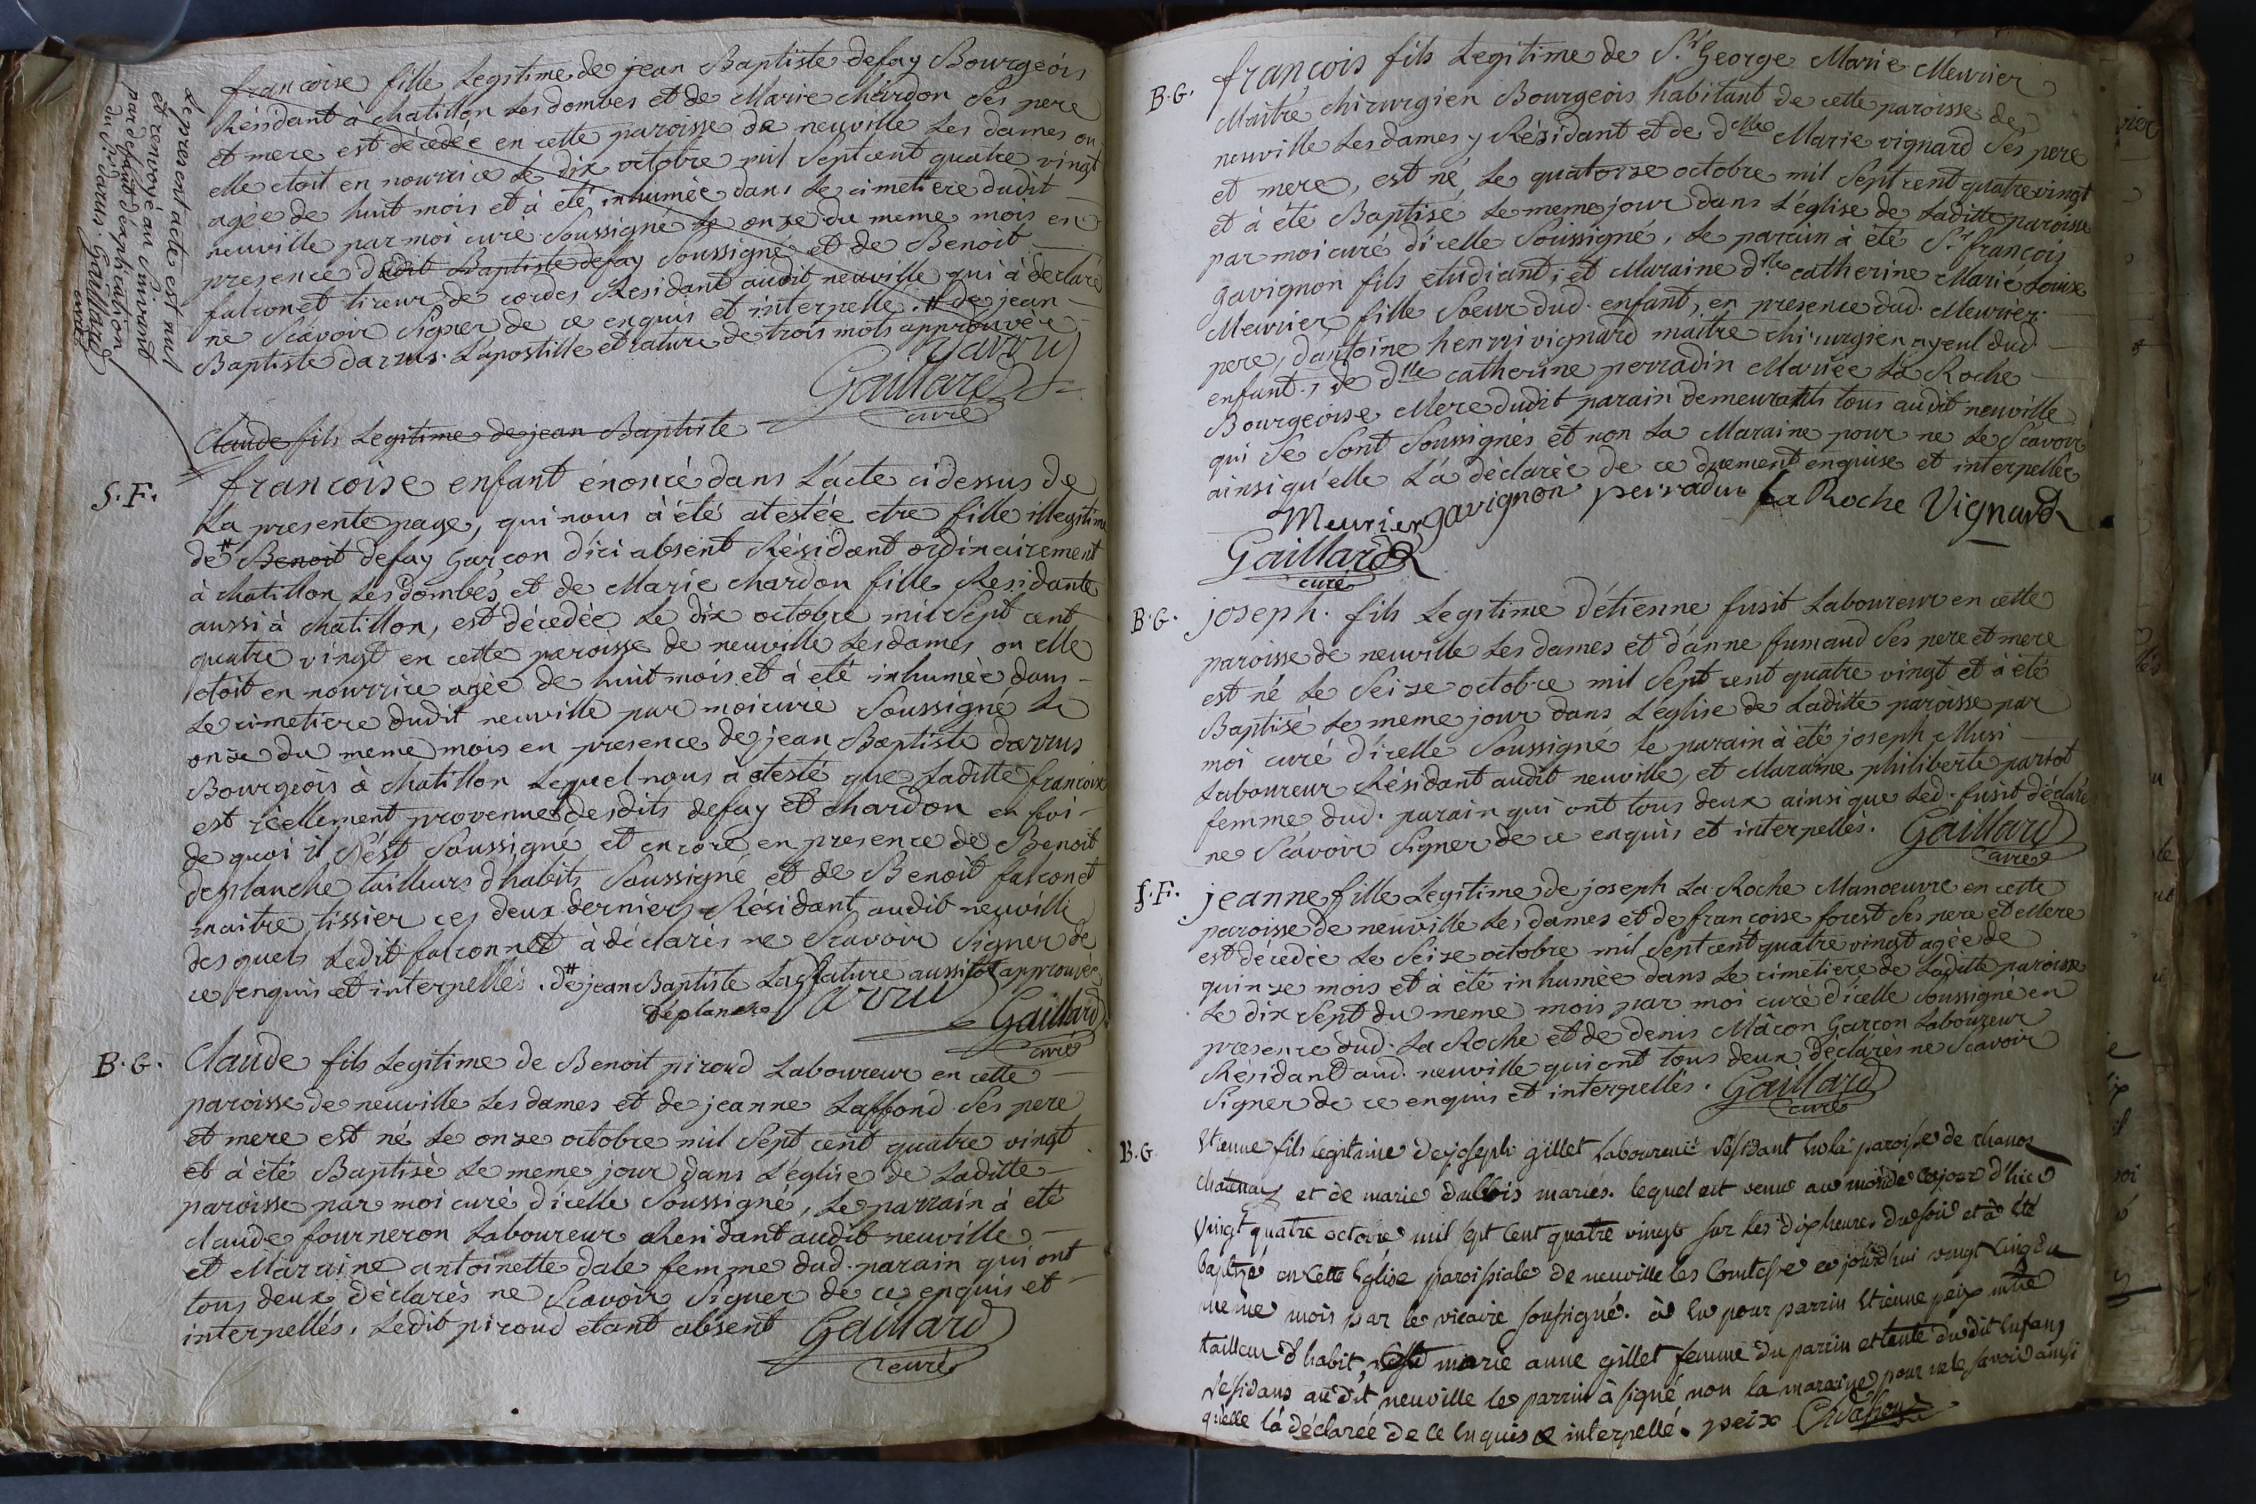 françoise fille Legitime de jean Baptiste defay Bourgeois
Résidant à chatillon Les dombes et de Marie chardon Ses pere
et mere est décédée en cette paroisse de neuville Les dames ou
elle etoit en nourrice Le dix octobre mil Septcent quatre vingt
agée de huit mois et à été inhumée dans Le cimetiere dudit
neuville par moi curé Soussigné Le onze du meme mois en
presence dudit Baptiste defay Soussigné et de Benoit
falconet tireur de cordes Residant audit neuville qui à déclaré
ne Scavoir Signer de ce enquis et interpelle. # de jean
Baptiste darrus. L'apostille et rature de trois mots approuvée
Darru
Gaillard
curé
Le present acte est nul
et renvoyé au suivant
par defaut d'explication
du Sr. darrus. Gaillard
curé
Claude fils Legitime de jean Baptiste
S.F.
francoise enfant énoncé dans L'acte cidessus de
La presente page, qui nous à été atestée etre fille illegitime
de # Benoit defay Garcon d'ici absent Résidant ordinairement
à chatillon Les dombes et de Marie chardon fille Residante
aussi à chatillon, est décedée Le dix octobre mil Sept cent
quatre vingt en cette paroisse de neuville Les dames ou elle
etoit en nourrice agée de huit mois et à été inhumée dans
Le cimetiere dudit neuville par moi curé Soussigné Le
onze du meme mois en presence de jean Baptiste darrus
Bourgeois à chatillon Lequel nous à atesté que Laditte francoise
est réellement provenue desdits defay et chardon en foi
de quoi il S'est Soussigné et encore en presence de Benoit
deplanche tailleur d'habits Soussigné et de Benoit falconet
maitre tissier ces deux derniers Résidant audit neuville
desquels Ledit falconnet à déclarés ne Scavoir Signer de
ce enquis et interpellés. # de jean Baptiste La Rature aussitot approuvée
déplanche Darru
Gaillard
curé
B.G.
Claude fils Legitime de Benoit piroud Laboureur en cette
paroisse de neuville Les dames et de jeanne Laffond Ses pere
et mere est né Le onze octobre mil Sept cent quatre vingt
et à été Baptisé Le meme jour dans L'église de Laditte
paroisse par moi curé d'icelle Soussigné, Le parrain à été
claude fourneron Laboureur Residant audit neuville
et Maraine antoinette dale femme dud. parain qui ont
tous deux déclarés ne Scavoir Signer de ce enquis et
interpellés. Ledit piroud etant absent Gaillard
curé
B.G.
françois fils Legitime de Sr. George Marie Meurier
Maitre chirurgien Bourgeois habitant de cette paroisse de
neuville Les dames y Résidant et de dlle Marie vignard Ses pere
et mere, est né Le quatorze octobre mil Sept cent quatre vingt
et à été Baptisé Le meme jour dans L'église de Laditte paroisse
par moi curé d'icelle Soussigné, Le parrain à été Sr. françois
gavignon fils etudiant, et Maraine dlle catherine Marie Louise
Meurier fille Soeur dud. enfant, en presence dud. Meurier
pere, d'antoine henri vignard maitre chirurgien ayeul dud.
enfant, de dlle catherine perradin Mariée La Roche
Bourgeoise Mere dudit parain demeurants tous audit neuville
qui Se Sont Soussignés et non La Maraine pour ne Le Scavoir
ainsi qu'elle L'a déclarée de ce duement enquise et interpellée
Meurier gavignon perradin La Roche Vignard
Gaillard
curé
B.G.
joseph. fils Legitime d'étienne fusit Laboureur en cette
paroisse de neuville Les dames et d'anne fumaud Ses pere et mere
est né Le Seize octobre mil Sept cent quatre vingt et à été
Baptisé Le meme jour dans L'église de Laditte paroisse par
moi curé d'icelle Soussigné Le parain à été joseph Musi
Laboureur Résidant audit neuville, et Maraine philiberte pariot
femme dud. parain qui ont tous deux ainsi que Led. fusit déclaré
ne Scavoir Signer de ce enquis et interpellés. Gaillard
curé
S.F.
jeanne fille Legitime de joseph La Roche Manoeuvre en cette
paroisse de neuville Les dames et de francoise forest Ses pere et Mere
est décedée Le Seize octobre mil Sept cent quatre vingt agée de
quinze mois et à été inhumée dans Le cimetiere de Laditte paroisse
Le dix Sept du meme mois par moi curé d'icelle Soussigné en
presence dud. La Roche et de denis Mâcon Garcon Laboureur
Résidant aud. neuville qui ont tous deux déclarés ne Scavoir
Signer de ce enquis et interpellés. Gaillard
curé
B.G.
Etienne fils legitime de joseph gillet laboureur résidant sur la paroisse de chanoz
chatenay et de marie dubois maries. lequel est venu au monde le jour d'hier
vingt quatre octobre mil sept cent quatre vingt sur les dix heures du soir et à été
baptizé en cette Église paroissiale de neuville les Comtesse ce jourd'hui vingt cinq du
meme mois par le vicaire soussigné. à eu pour parrin Etienne peix mtre
tailleur d'habit, marie anne gillet femme du parrin et tente dudit enfant
residans audit neuville le parrin à signé non la maraine pour ne le savoir ainsi
quelle la déclarée de ce enquise & interpellé. peix